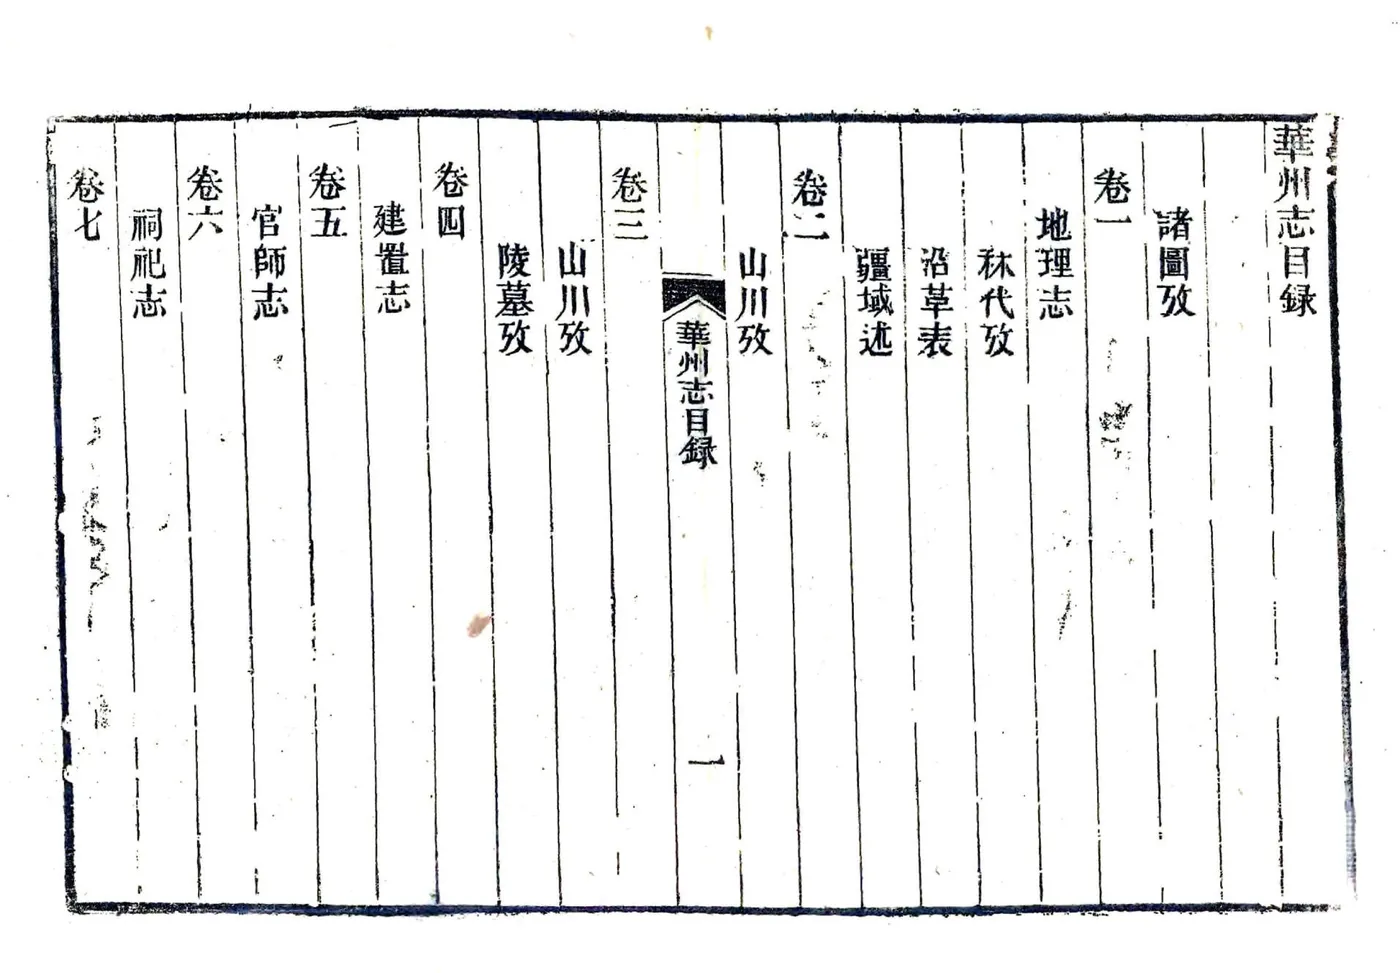 華州志目録
諸圖攷
卷一
地理志
秝代攷
沿革表
疆域述
卷二
山川攷
華州志目録
一
卷三
山川攷
陵墓攷
卷四
建置志
卷五
官師志
卷六
祠祀志
卷七